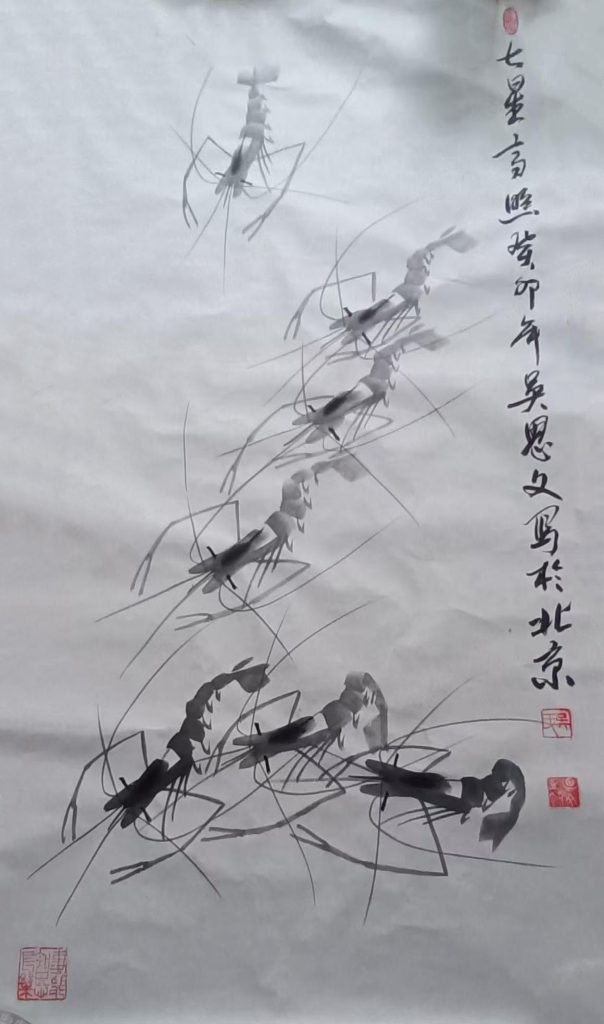 七星高照癸卯年吴思文写於北京